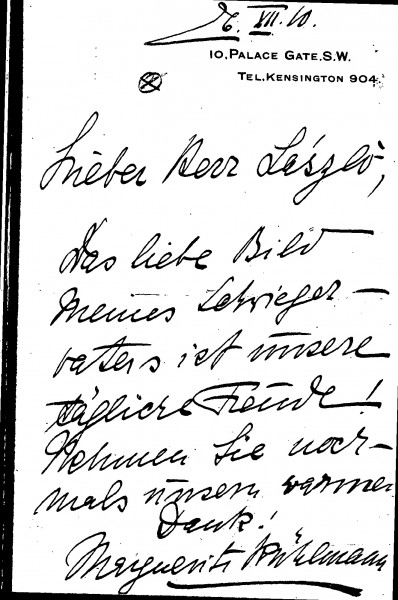 XII. 10.
10, PALACE GATE. S.W.
TEL. KENSINGTON 904.
Lieber Herr László,
Das liebe Bild
meines Schwieger-
vaters ist unsere
tägliche Freude!
Nehmen Sie noch-
mals unsern warmen
Dank!
Marguerite Kühlmann